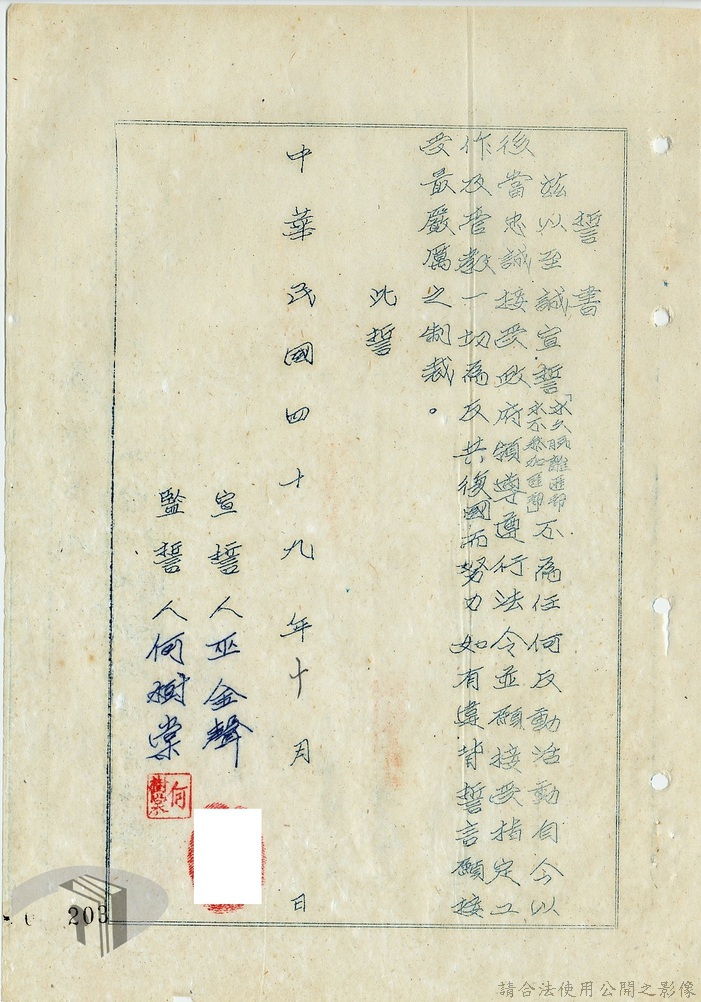 誓書
茲以至誠宣誓「永久脫離匪幫
永不參加匪幫」不為任何反動活動自今以
後當忠誠接受政府領導遵行法令並願接受指定工
作及管教一切為反共復國而努力如有違背誓言願接
受最嚴厲之制裁。
此誓
中華民國四十九年十月 日
宣誓人巫金聲
監誓人何樹棠
何樹棠
203
請合法使用公開之影像